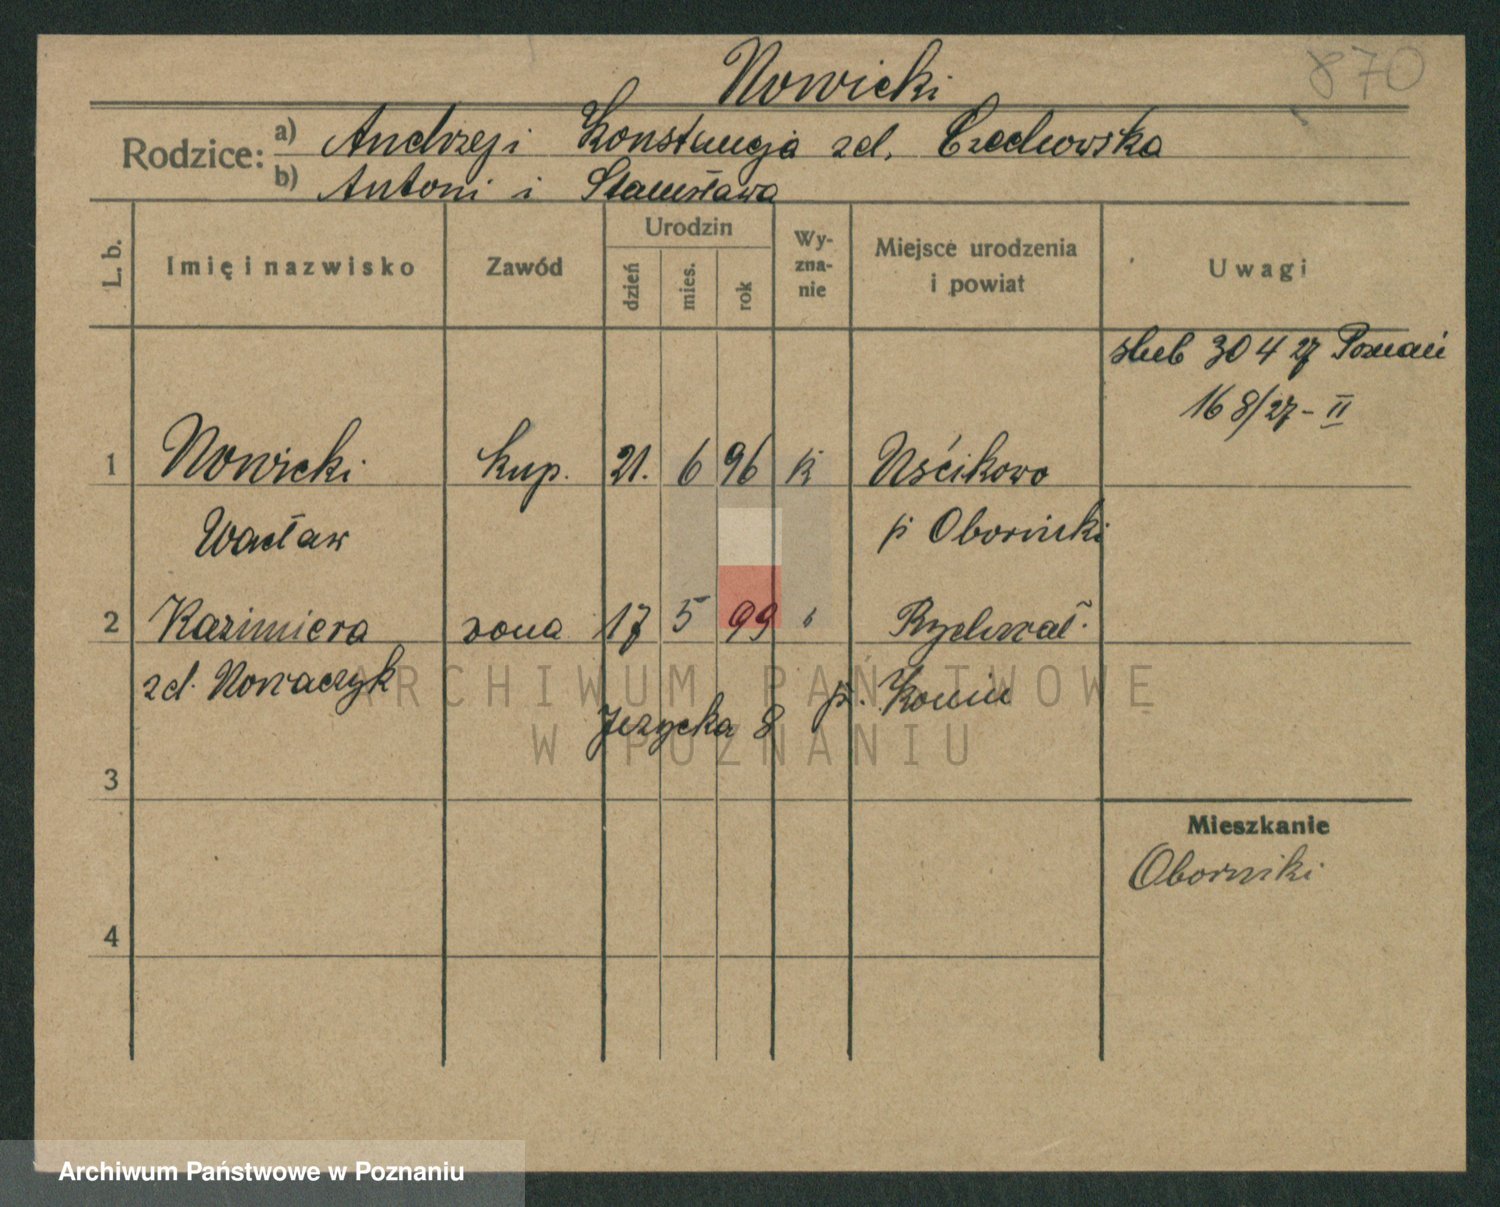 Nowicki
870
Rodzice:
a) Andrzej i Konstancja zd. Czechowska
b) Antoni i Stanisława
L. b.
Imię i nazwisko
Zawód
Urodzin
dzień
mies.
rok
Wy-
zna-
nie
Miejsce urodzenia
i powiat
Uwagi
slub 30 4 27 Poznań
168/27 - II
1 Nowicki kup. 21. 6 96 k Uścikowo
Wacław p Oborniki
2 Kazimiera zona 17 5 99 Rychwał
zd. Nowaczyk p. Konin
Jezycka 8
3
Mieszkanie
Oborniki
4
ARCHIWUM PAŃSTWOWE
W POZNANIU
Archiwum Państwowe w Poznaniu